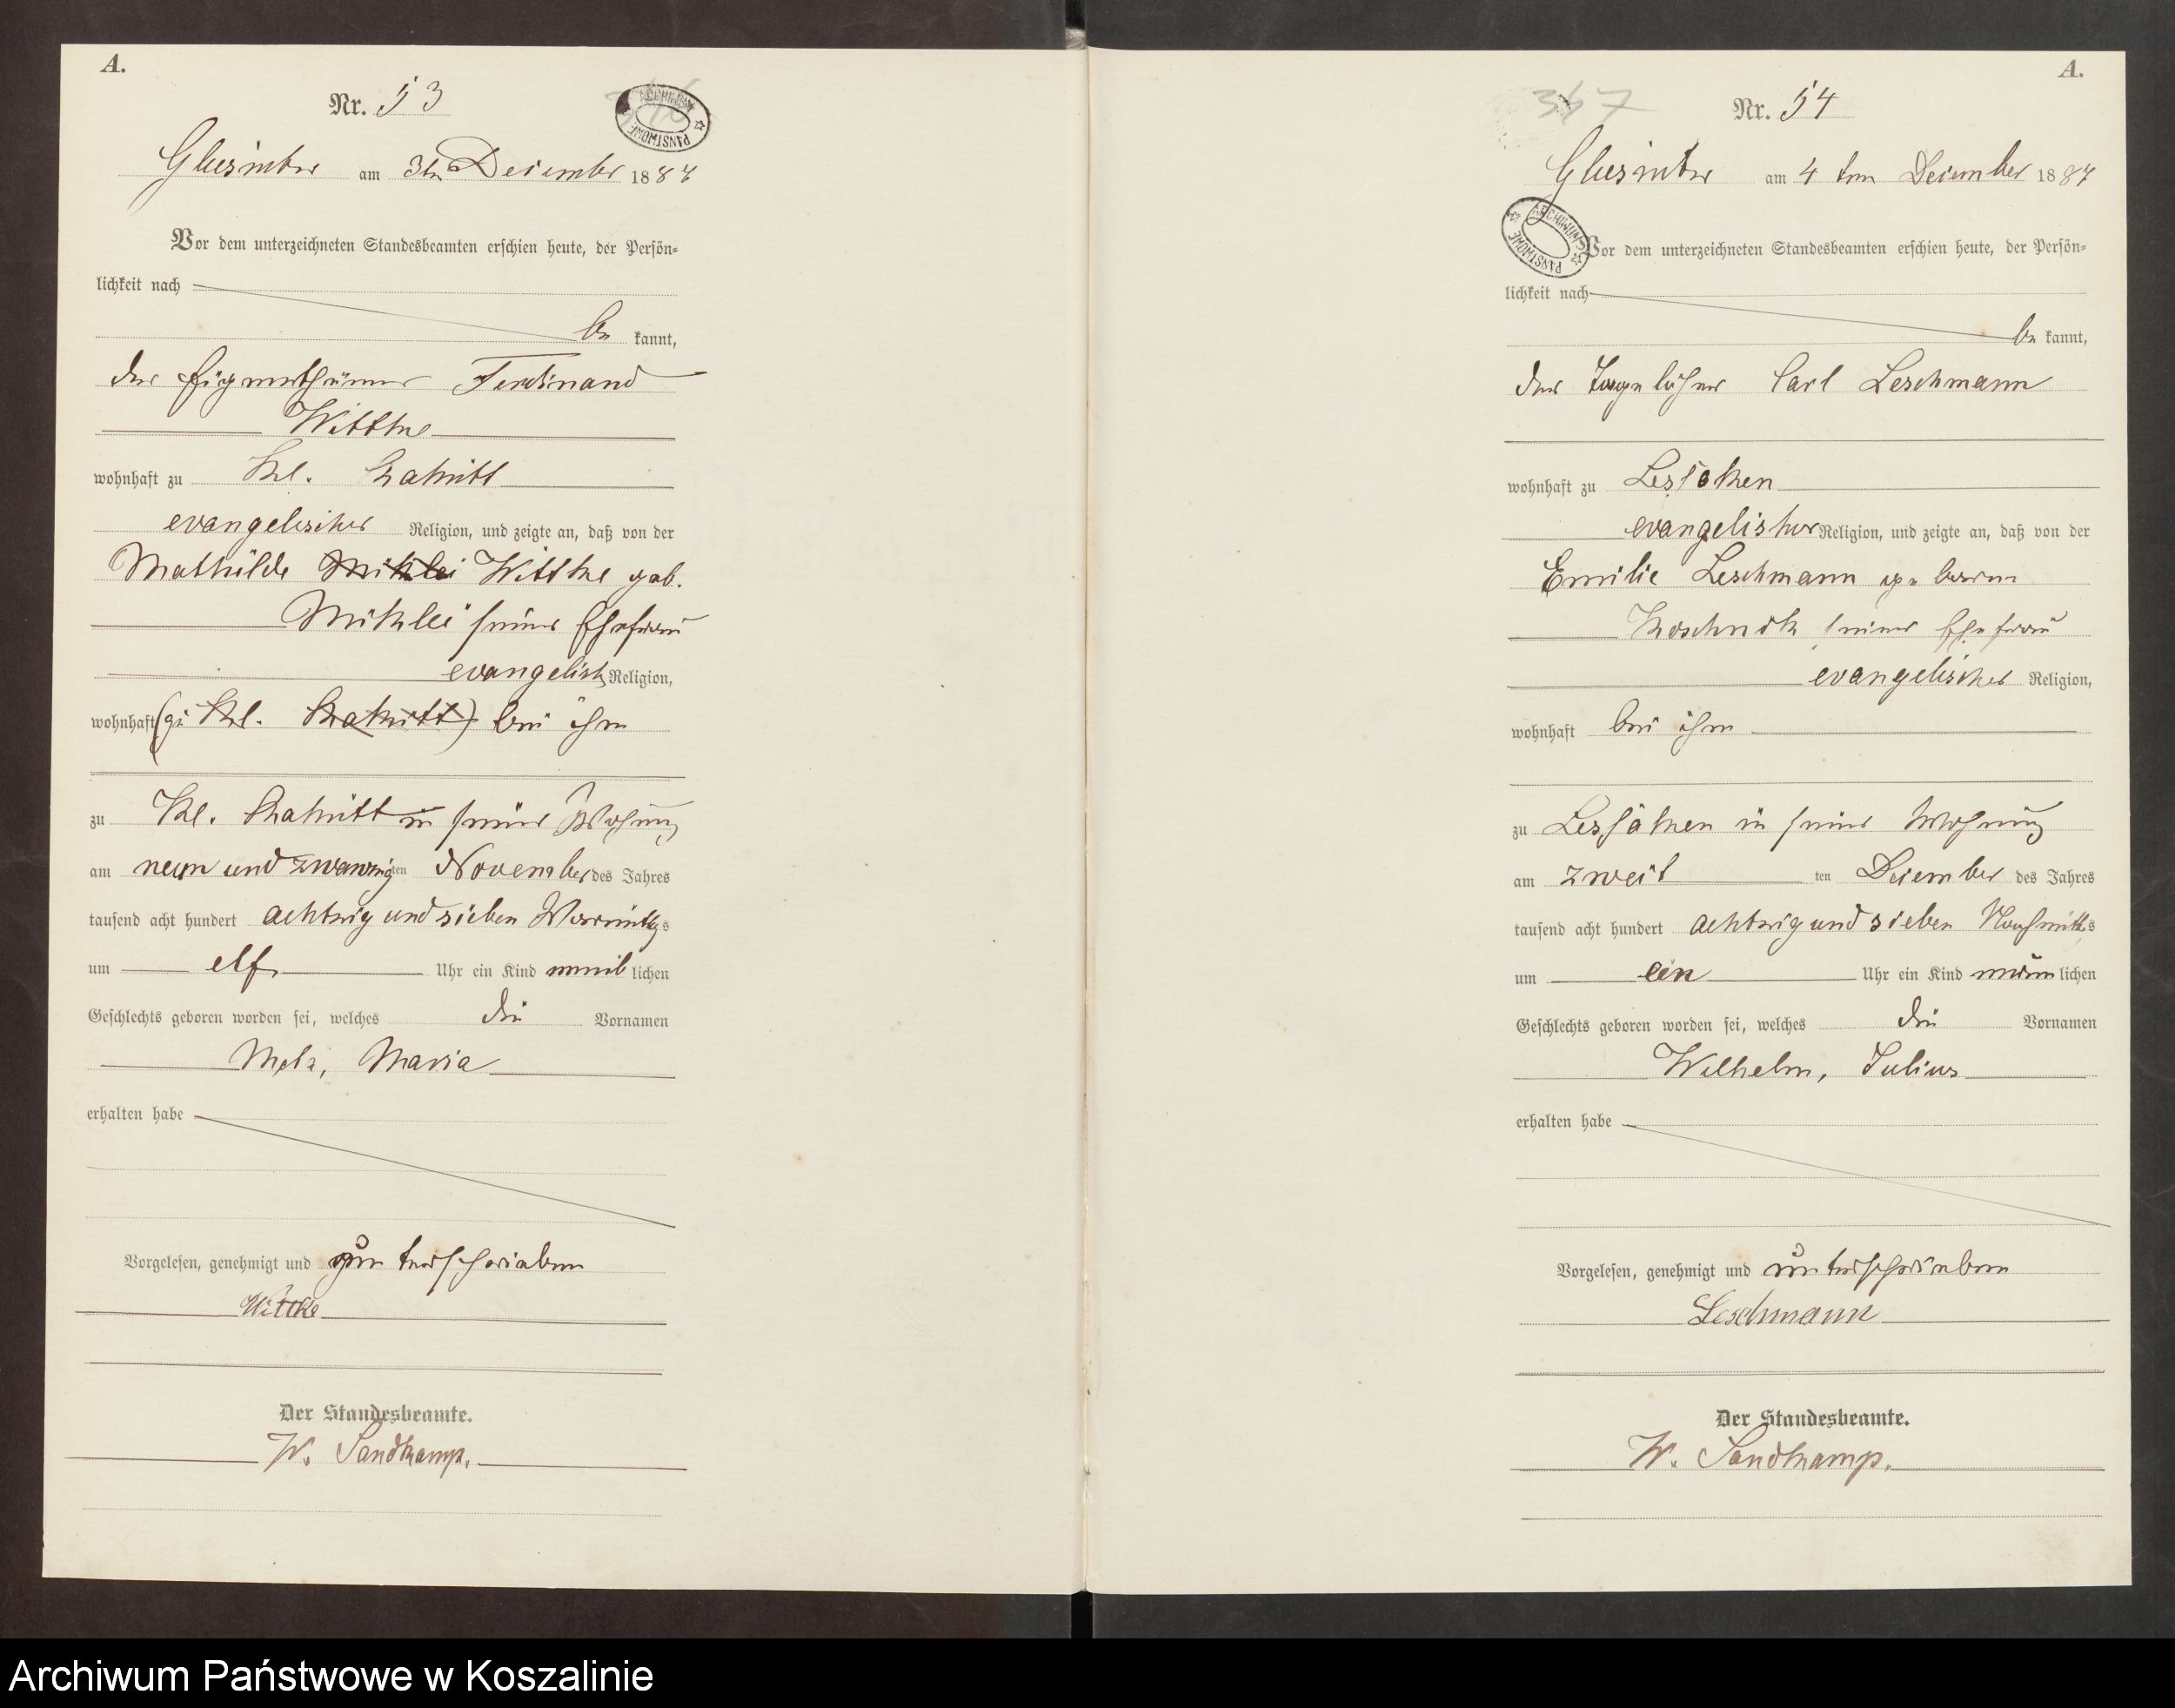 A.
Nr. 53
am 3ten Dezember 1887
Vor dem unterzeichneten Standesbeamten erschien heute, der Persön-
lichkeit nach
be kannt,
der Eigenthümer Ferdinand
Wittke
wohnhaft zu Kl. Rakitt
evangelischer Religion, und zeigte an, daß von der
Mathilde Miklei Wittke geb.
Miklei seiner Ehefrau
evangelisch Religion,
wohnhaft (zu Kl. Rakitt) bei ihm
zu Kl. Rakitt in seiner Wohnung
am neun und zwanzigten November des Jahres
tausend acht hundert achtzig und sieben Vormittags
um elf Uhr ein Kind weiblichen
Geschlechts geboren worden sei, welches die Vornamen
Maria
erhalten habe
Vorgelesen, genehmigt und unterschrieben
Wittke
Der Standesbeamte.
W. Sandkamp.
A.
367
Nr. 54
am 4 ten Dezember 1887
Vor dem unterzeichneten Standesbeamten erschien heute, der Persön-
lichkeit nach
be kannt,
der Tagelöhner Carl Leschmann
wohnhaft zu Lessaken
evangelischer Religion, und zeigte an, daß von der
Emilie Leschmann geborene
Koschnik seiner Ehefrau
evangelischer Religion,
wohnhaft bei ihm
zu Lessaken in seiner Wohnung
am zweit ten Dezember des Jahres
tausend acht hundert achtzig und sieben Nachmittags
um ein Uhr ein Kind männlichen
Geschlechts geboren worden sei, welches die Vornamen
Wilhelm, Julius
erhalten habe
Vorgelesen, genehmigt und unterschrieben
Leschmann
Der Standesbeamte.
W. Sandkamp.
ARCHIWUM PAŃSTWOWE
Archiwum Państwowe w Koszalinie